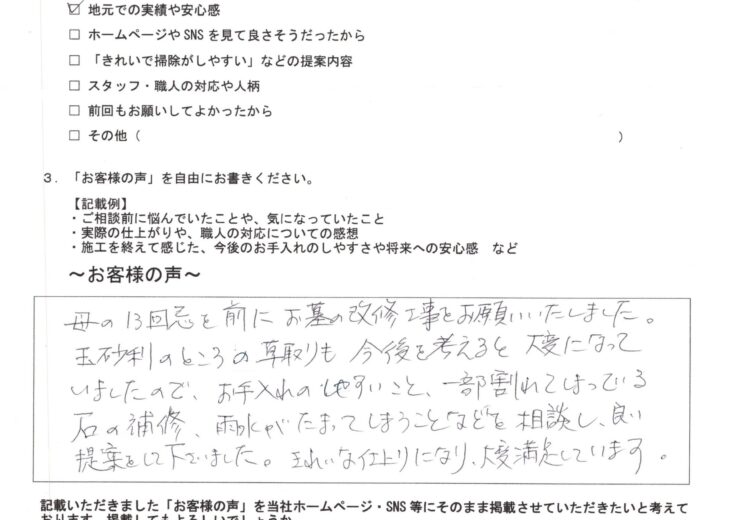 ☑ 地元での実績や安心感
□ ホームページやSNSを見て良さそうだったから
□ 「きれいで掃除がしやすい」などの提案内容
□ スタッフ・職人の対応や人柄
□ 前回もお願いしてよかったから
□ その他（　　　　　　　　　　）
3．「お客様の声」を自由にお書きください。
【記載例】
・ご相談前に悩んでいたことや、気になっていたこと
・実際の仕上がりや、職人の対応についての感想
・施工を終えて感じた、今後のお手入れのしやすさや将来への安心感　など
～お客様の声～
母の13回忌を前にお墓の改修工事をお願いいたしました。
玉砂利のところの草取りも今後を考えると大変になって
いましたので、お手入れのしやすいこと、一部割れてしまっている
石の補修、雨水がたまってしまうことなどを相談し、良い
提案をして下さいました。きれいな仕上りになり、大変満足しています。
記載いただきました「お客様の声」を当社ホームページ・SNS等にそのまま掲載させていただきたいと考えて
おります。掲載してもよろしいでしょうか